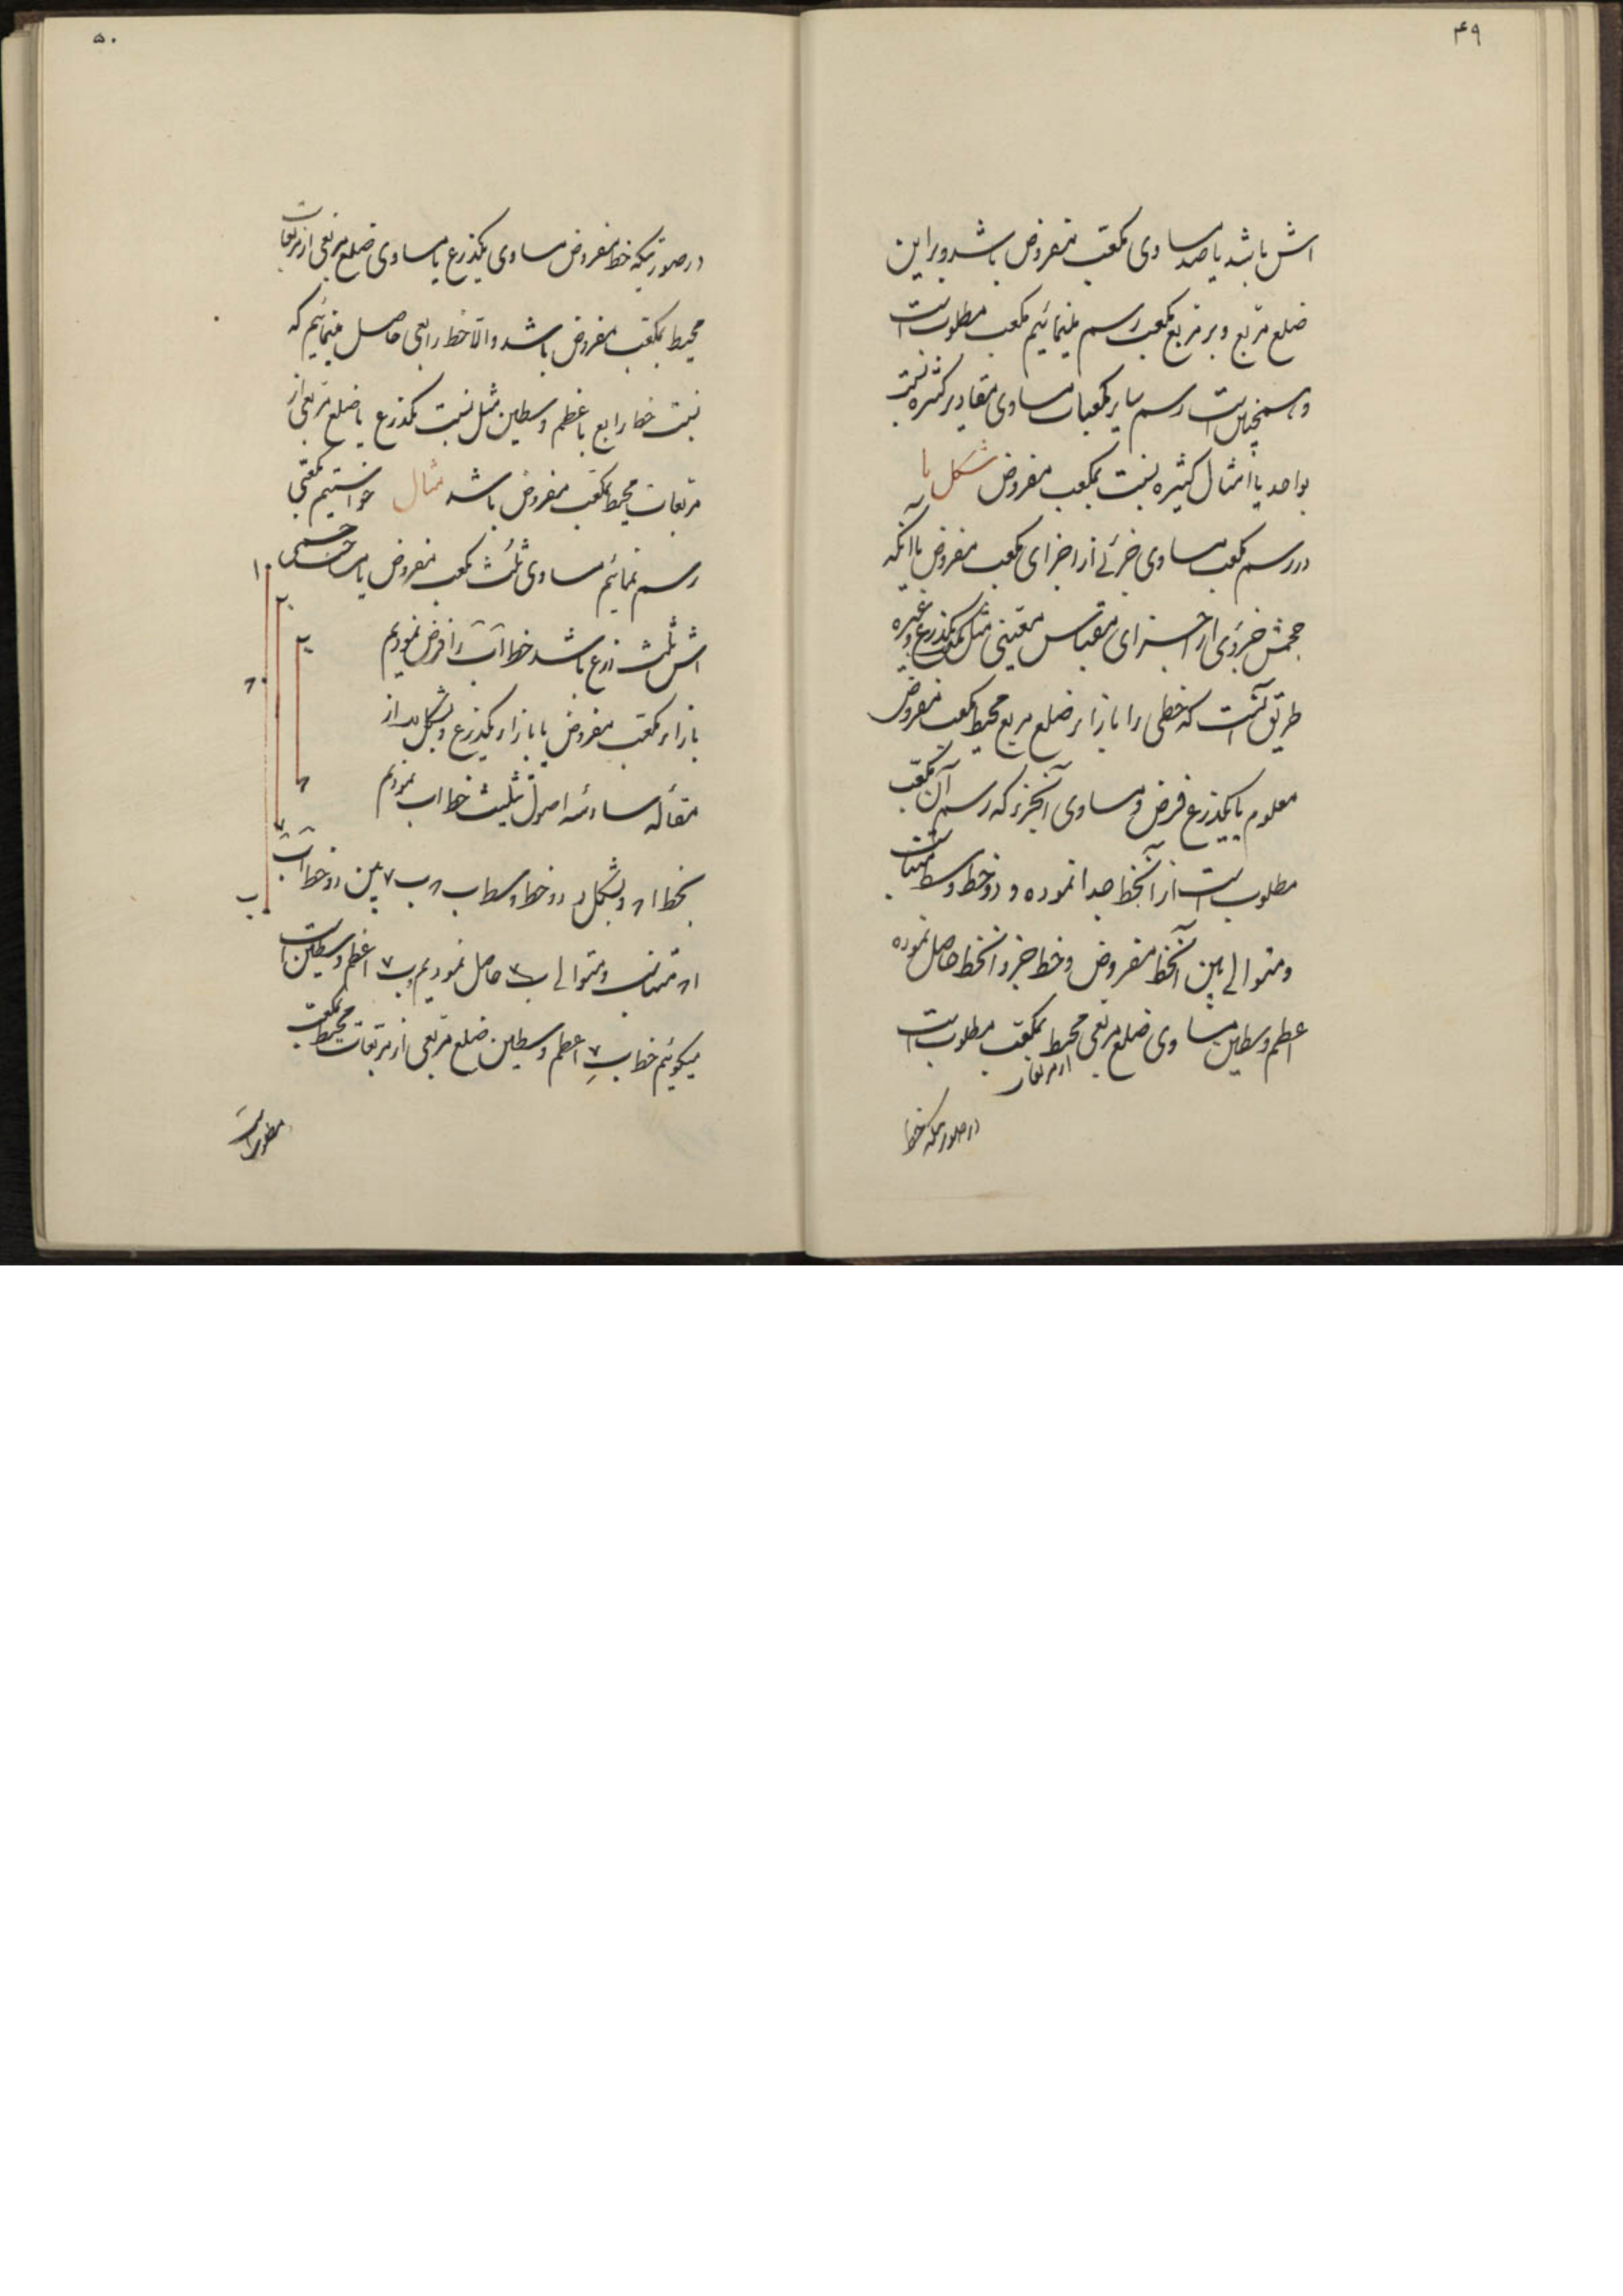 ۴۹
اش باشد یا صد مساوی مکعب مفروض باشد و بر این
ضلع مربع و بر مربع مکعب رسم مینمائیم مکعب مطلوب است
و همچنین است رسم سایر مکعبات مساوی مقادیر کثیره نسبت
بواحد یا امثال کثیره نسبت بمکعب مفروض شکل یا
در رسم مکعب مساوی جزئی از اجزای مکعب مفروض یا آنکه
حجمش جزوی از اجزای مقیاس معینی مثل مکعب یکذرع و غیره
طریق آنست که خطی را بازاء ضلع مربع محیط مکعب مفروض
معلوم یا یکذرع فرض و مساوی آنجزء که رسم آن مکعب
مطلوب است از آنخط جدا نموده و دو خط وسط متناسب
و متوالی بین آنخط مفروض و خط جزو آنخط حاصل نموده
اعظم وسطین مساوی ضلع مربعی محیط بمکعب مطلوب است
از مربعات
در صورتیکه خط
۵۰
در صورتیکه خط مفروض مساوی یکذرع یا مساوی ضلع مربعی از مربعات
محیط بمکعب مفروض باشد والا خط رابعی حاصل مینمائیم که
نسبت خط رابع با عظم وسطین مثل نسبت یکذرع یا ضلع مربعی از
مربعات محیط بمکعب مفروض باشد مثال خواستیم مکعبی
رسم نمائیم مساوی ثلث مکعب مفروض یا جسمی
اش ثلث ذرع باشد خط اب را فرض نمودیم
بازاء مکعب مفروض یا بازاء یکذرع و بشکل از
مقاله سادسه اصول تثلیث خط اب نمودیم
بخط ا۸ و بشکل دو خط وسط ب۸ ب۷ بین دو خط اب
ا۸ متناسب و متوالی حاصل نمودیم و ب۷ اعظم وسطین است
میگوئیم خط ب۷ اعظم وسطین ضلع مربعی از مربعات محیط بمکعب
مطلوب است
ا
ب
۸
۷